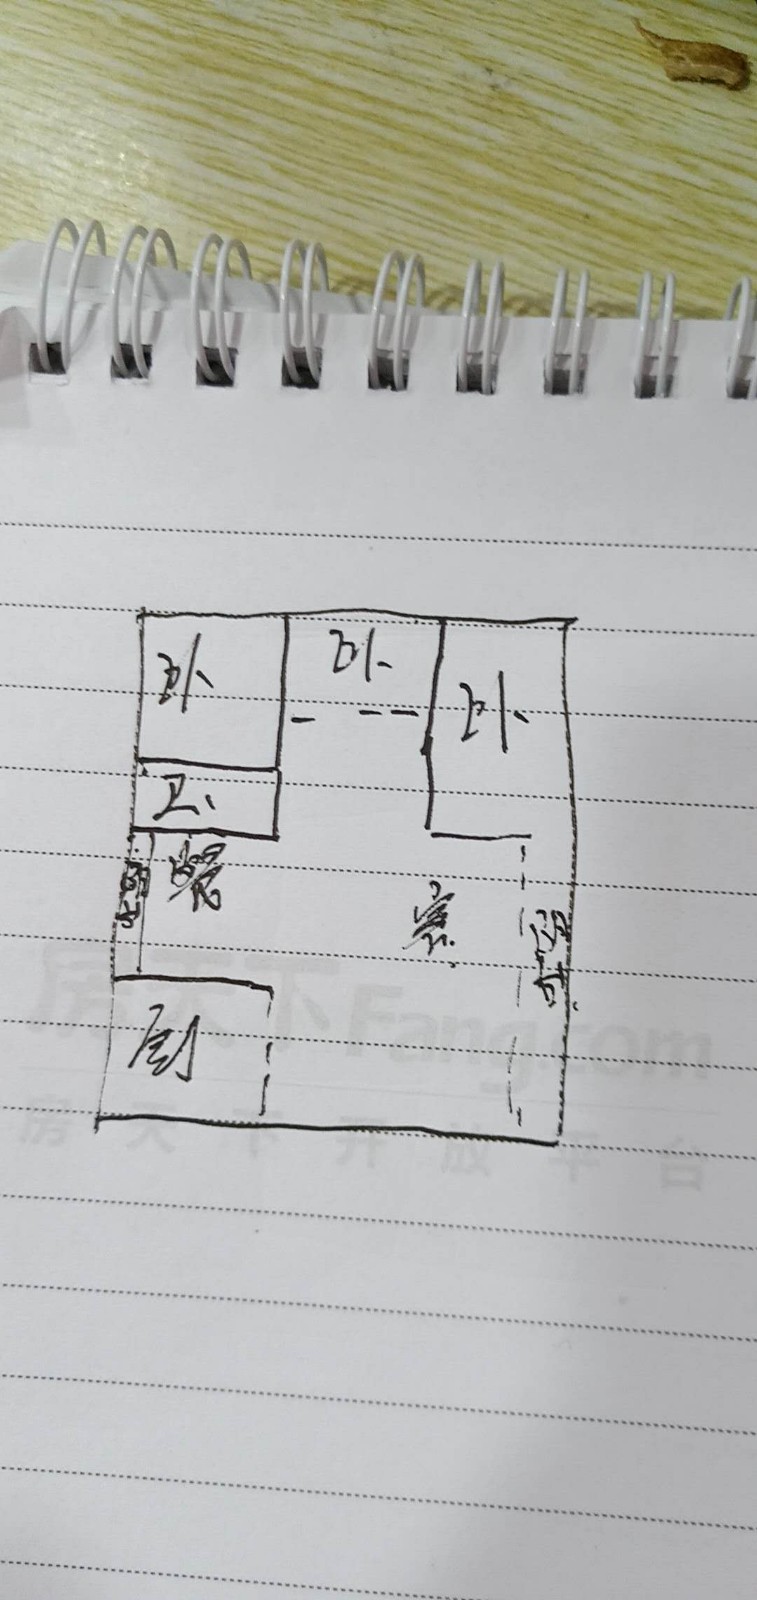 卧
卧
卧
卫
餐
阳台
客
阳台
厨
房天下 Fang.com
房天下开放平台